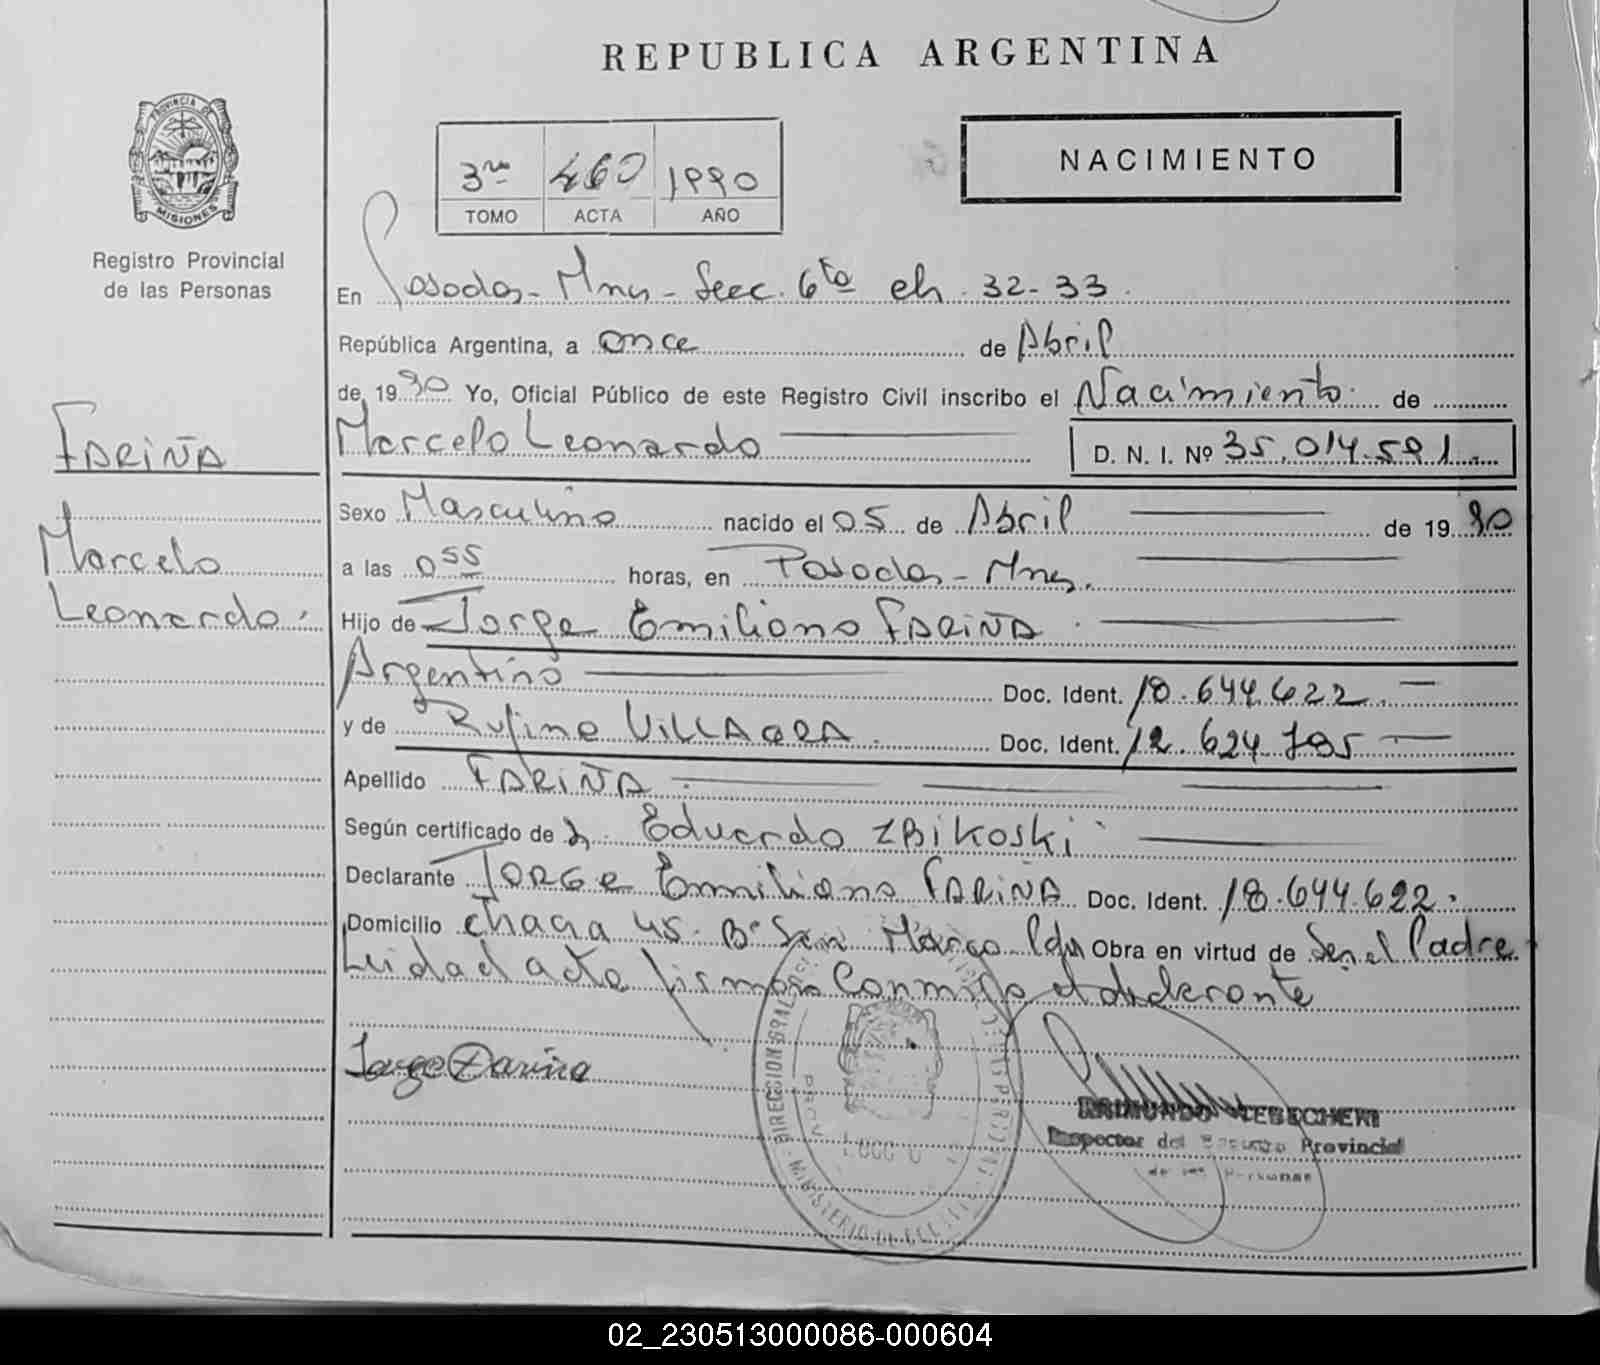 REPUBLICA ARGENTINA
PROVINCIA DE
MISIONES
Registro Provincial
de las Personas
NACIMIENTO
3ro 460 1990
TOMO ACTA AÑO
En Posadas - Mnes - Secc. 6ta ch. 32-33.
República Argentina, a once de Abril
de 1990 Yo, Oficial Público de este Registro Civil inscribo el Nacimiento de
Marcelo Leonardo D. N. I. Nº 35.014.591
FARIÑA
Marcelo
Leonardo.
Sexo Masculino nacido el 05 de Abril de 1990
a las 0 55 horas, en Posadas - Mnes.
Hijo de Jorge Emiliano FARIÑA
Argentino Doc. Ident. 18.644.622.
y de Rufina VILLAGRA. Doc. Ident. 12.624.795
Apellido FARIÑA
Según certificado de Eduardo ZBIKOSKI
Declarante JORGE Emiliano FARIÑA Doc. Ident. 18.644.622.
Domicilio chacra 45. Bº San Marco Pdas Obra en virtud de Ser el Padre.
Leida el acta firma Conmigo el declarante
Jorge Farina
DIRECCION GRAL.
MINISTERIO DE
RAIMUNDO TEBECHERI
Inspector del Registro Provincial
de las Personas
02_230513000086-000604